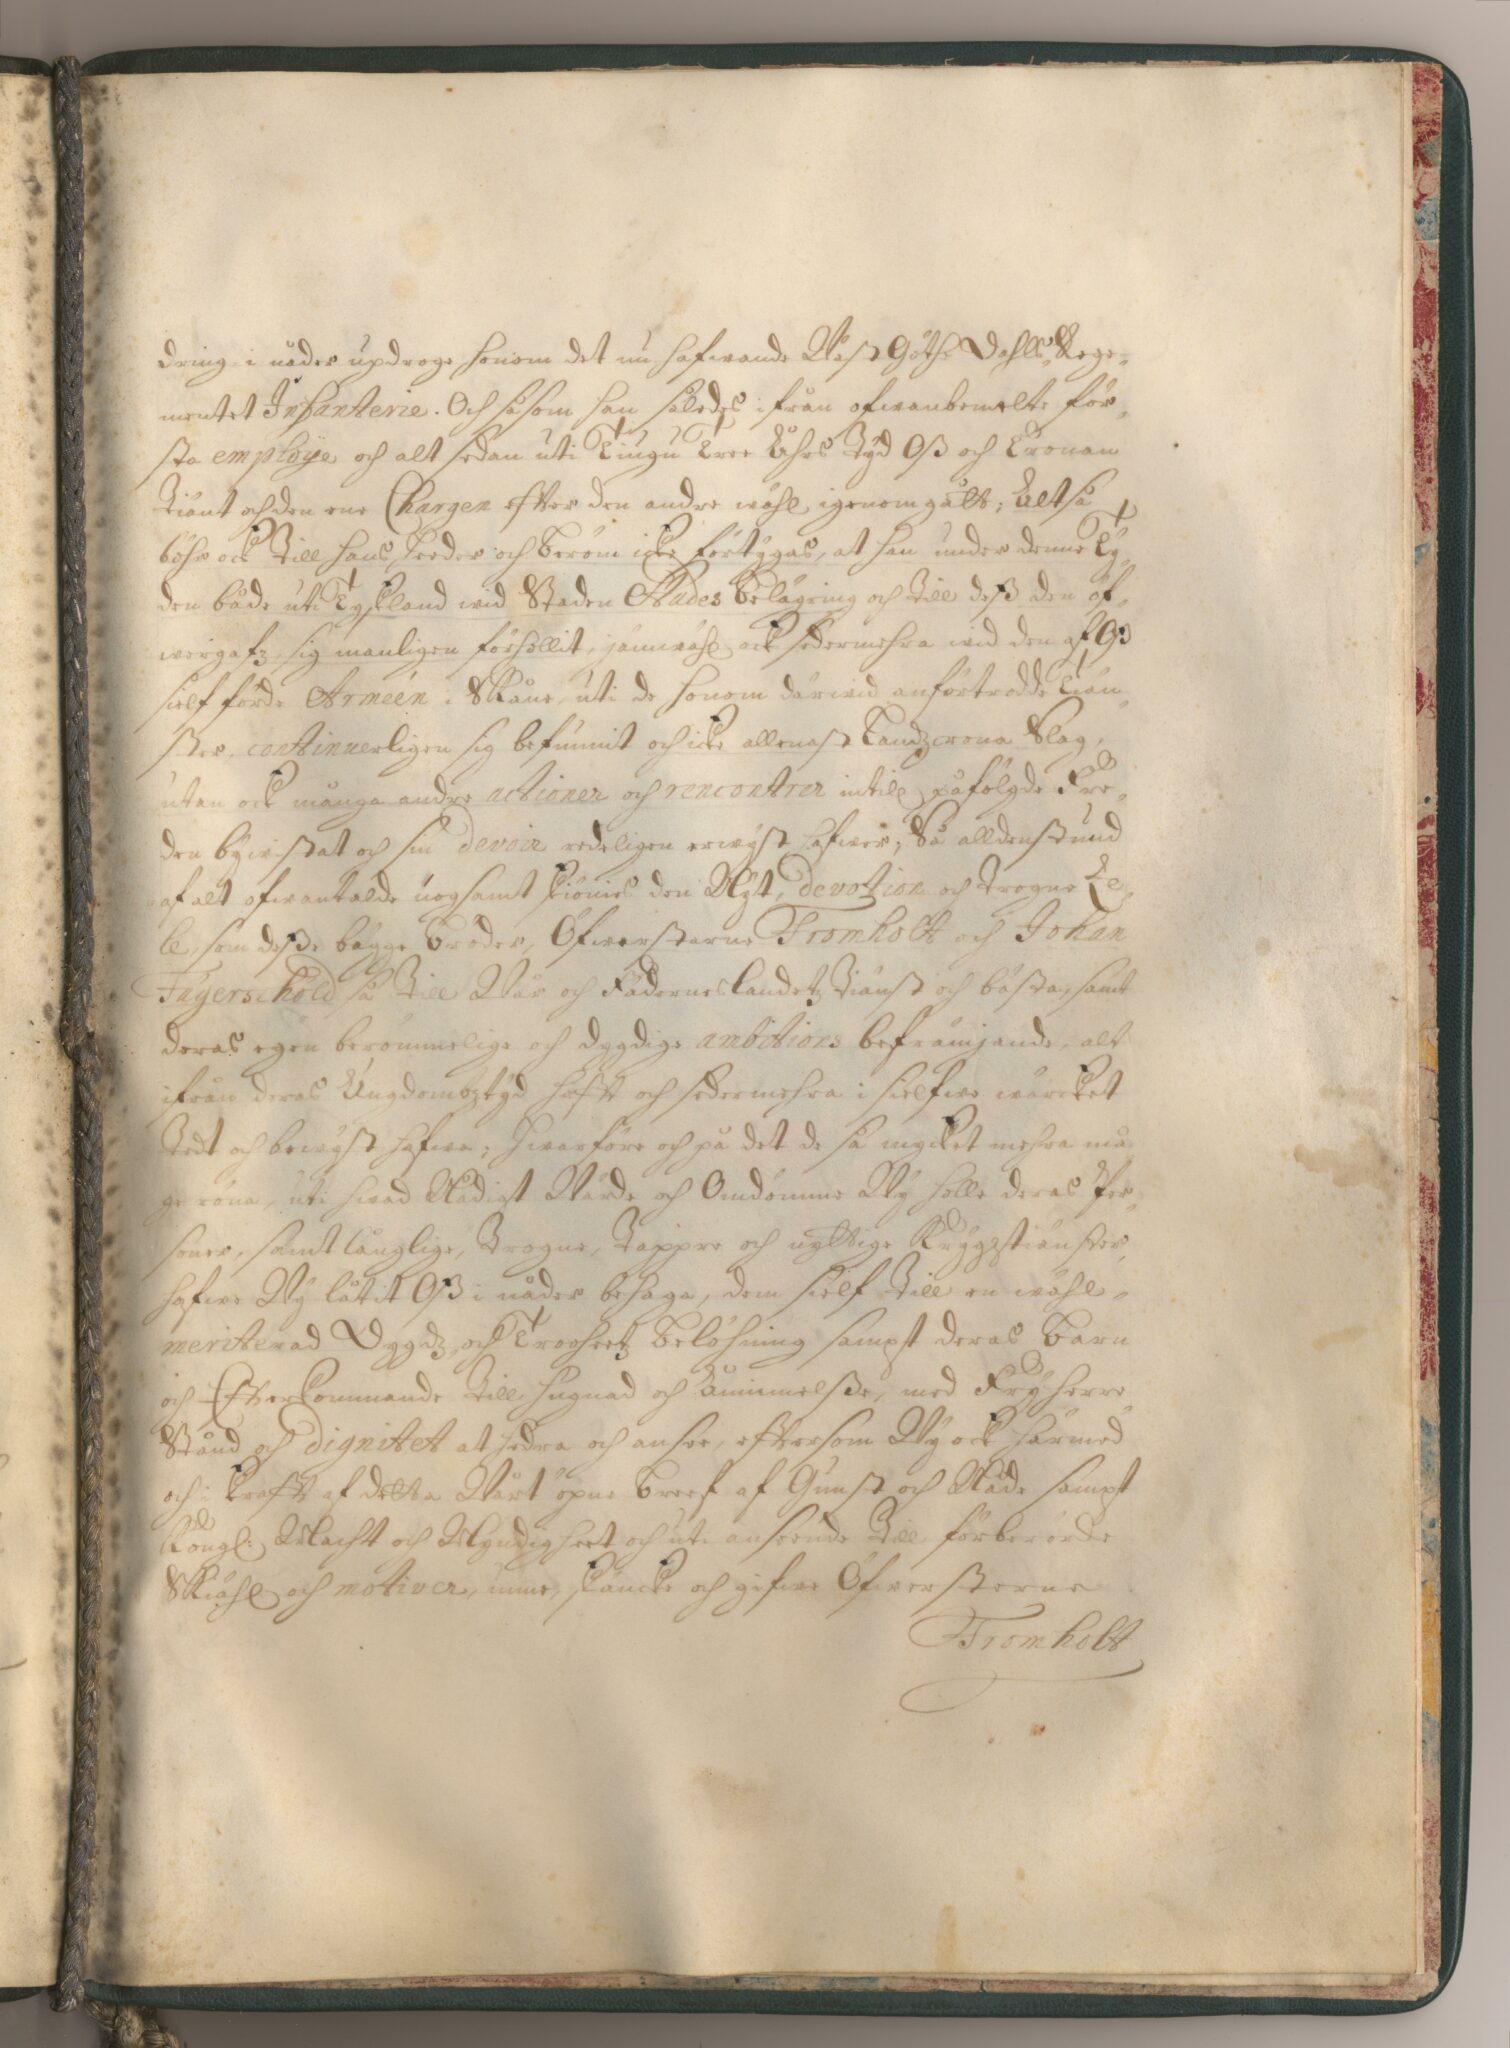 dring i nåder updroge honom det nu hafwande Wäst Göthe Dahls Rege-
mentet Infanterie. Och såsom han således ifrån ofwanbemelte för-
sta employe och alt sedan uti Tiugu Tree Åhrs Tyd Oß och Cronan
Tiänt och den ene Chargen effter den andre wähl igenomgått; Altså
böhr ock till hans heeder och beröm icke förtygas, at han under denne Ty-
den både uti Tyskland wid Staden Stades belägring och till deß den öf-
wergafz, sig manligen förhållit, jämwähl ock sedermehra wid den af Oß
sielf förde Arméen i Skåne, uti de honom därwid anförtrodde Tiän-
ster, continuerligen sig befunnit och icke allenast Landzcrona Slag,
utan ock många andre actioner och rencontrer intill påfölgde Fre-
den bywistat och sin devoir redeligen erwyst hafwer; Så alldenstund
af alt ofwantalde nogsamt skiönies den Nyt, devotion och Trogne
som deße bägge Bröder, Öfwersterne Fromholt och Johan
Fägerschöld så till Wår och Fäderneslandetz tiänst och bästa, samt
deras egen berömmelige och dygdige ambitions befrämjande, alt
ifrån deras Ungdombztyd hafft och sedermehra i sielfwe wärcket
Tedt och bewyst hafwa; Hwarföre och på det de så mycket mehra må-
ge röna, uti hwad Nådigt Wärde och Omdömme Wy hålle deras Per-
soner, samt långlige, Trogne, Tappre och nyttige Krygztiänster,
hafwe Wy låtit Oß i nåder behaga, dem sielf till en wähl-
meriterad Dygdz och Trooheetz belöhning sampt deras Barn
och Effterkommande till hugnad och åminnelße, med Fryherre
Stånd och dignitet at hedra och ansee, efftersom Wy ock härmed
och i krafft af detta Wårt öpne Breef af Gunst och Nåde sampt
Kongl: Macht och Myndigheet och uti anseende till förberörde
Skiähl och motiver, unne, skäncke och gifwe Öfwersterne
Fromholt